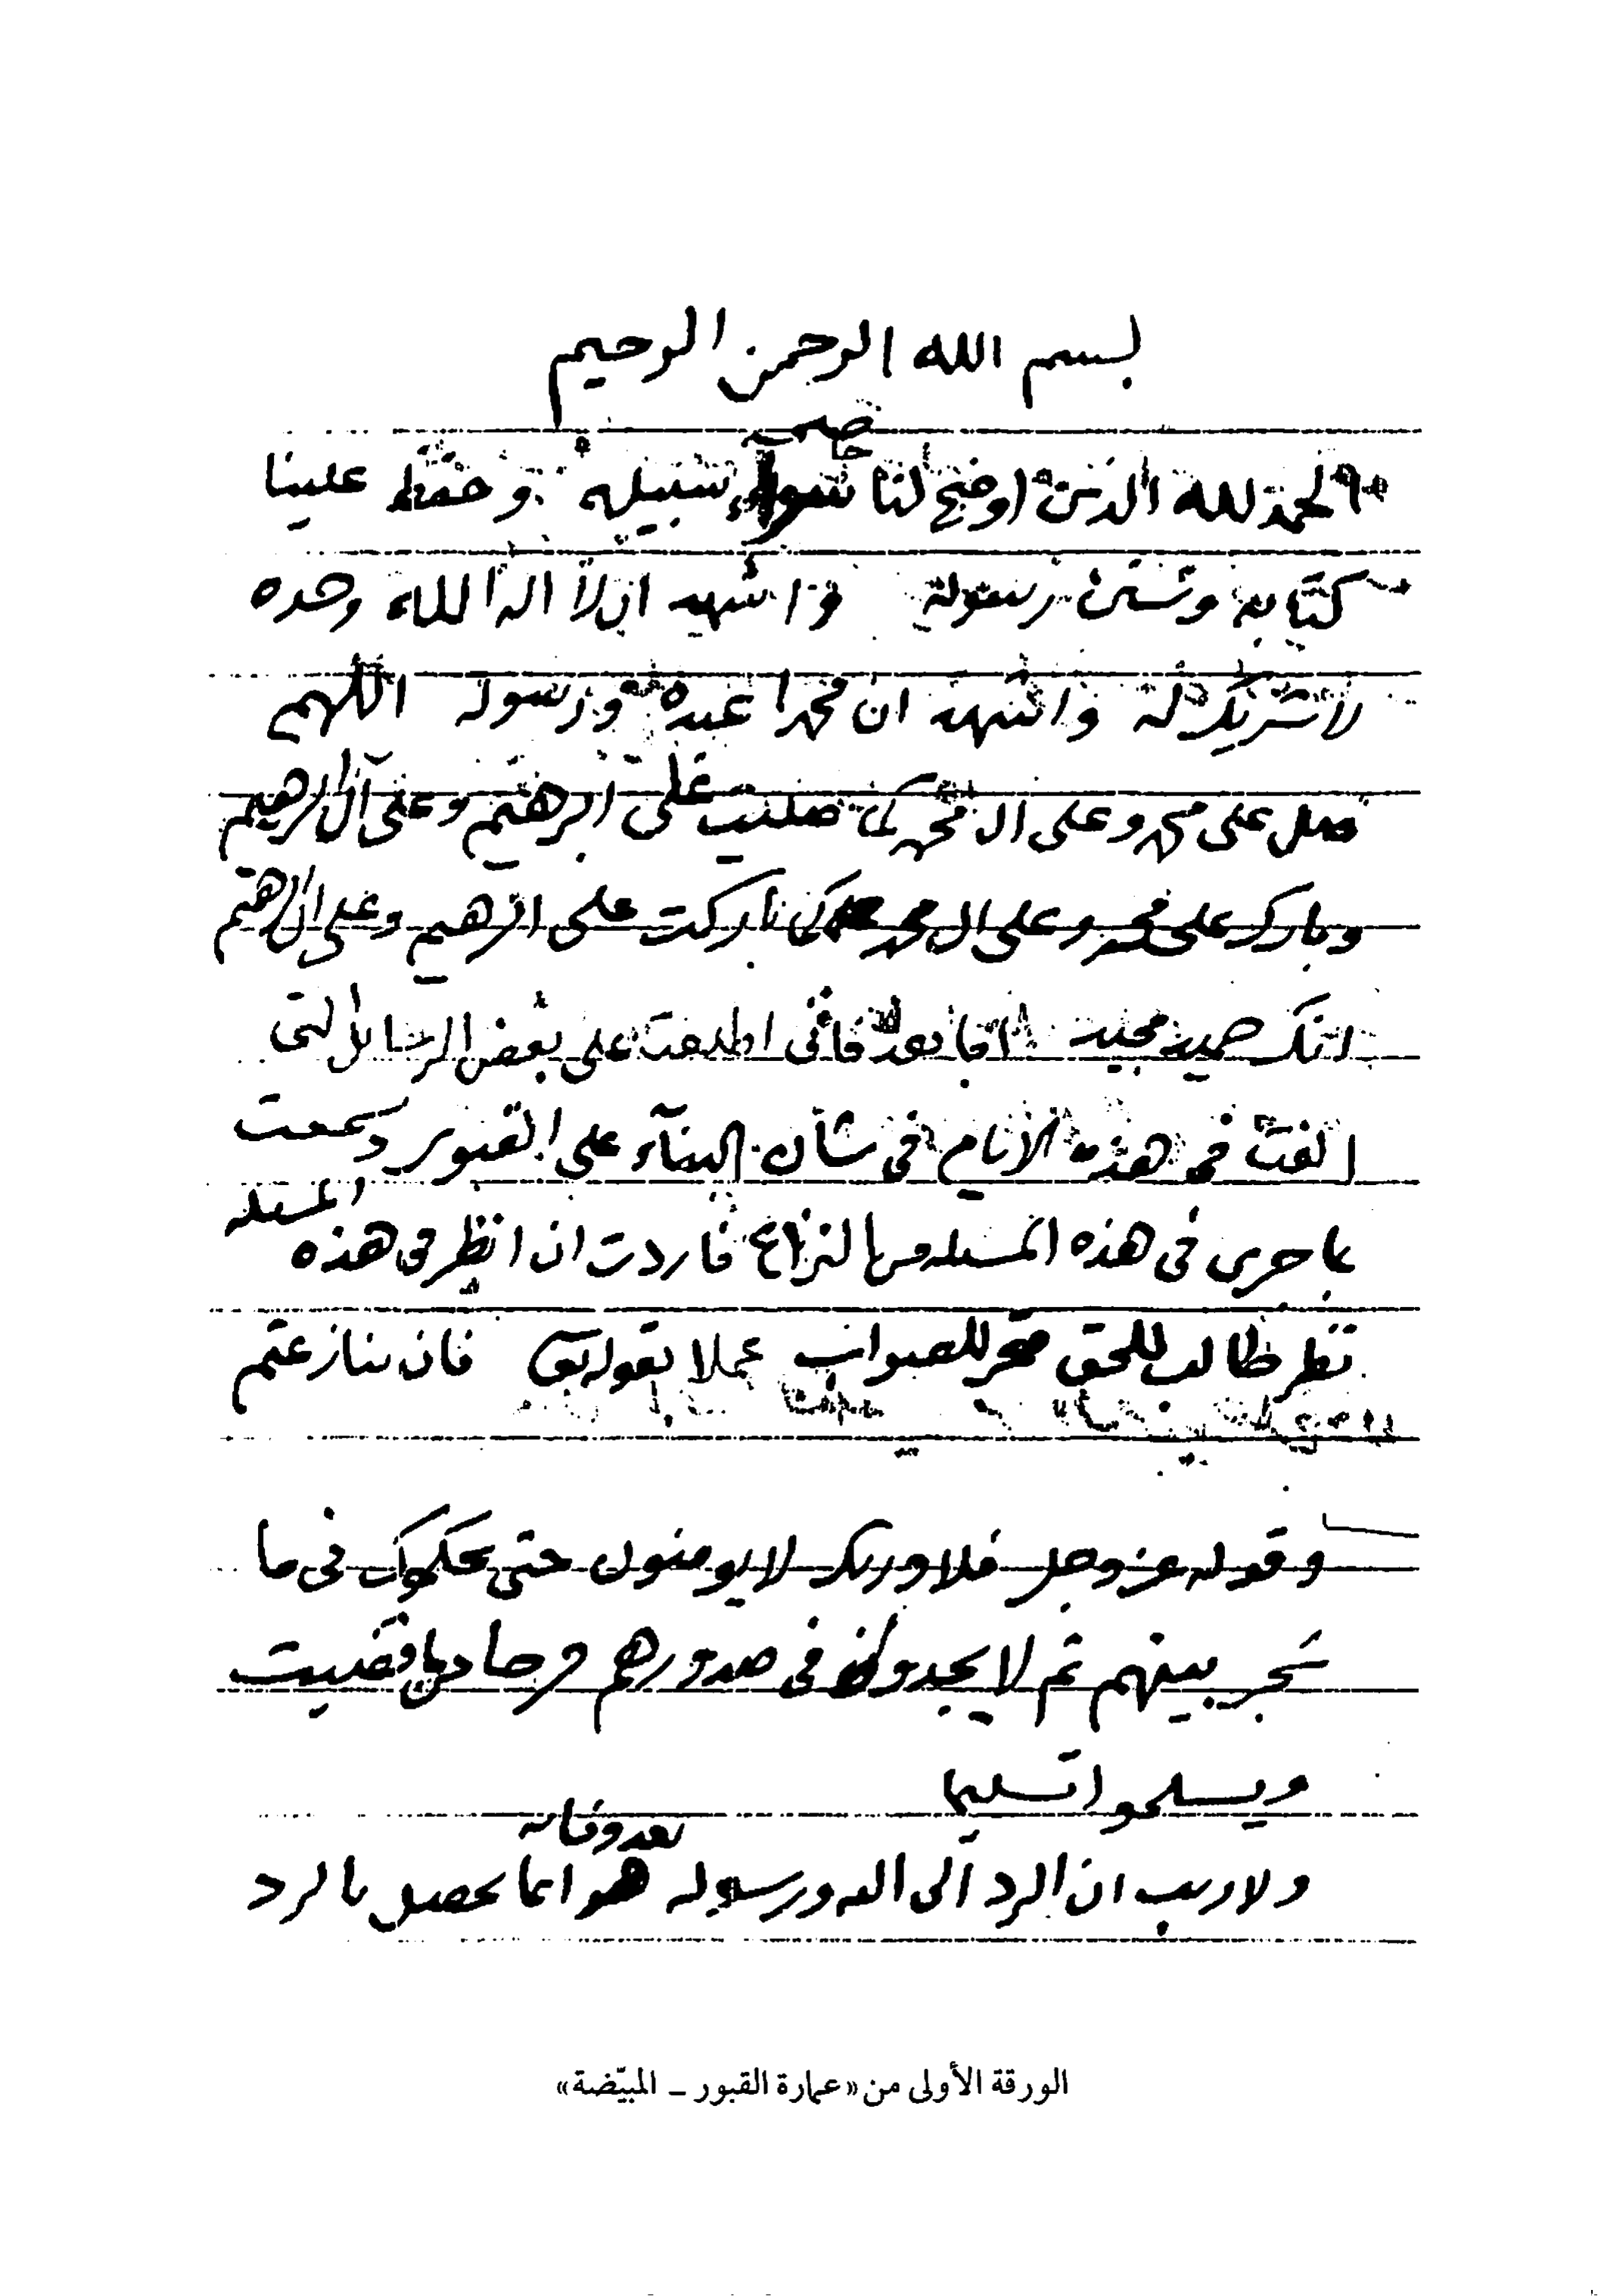 بسم الله الرحمن الرحيم
الحمد لله الذي اوضح لنا سواء سبيله وحفظ علينا
كتابه وسنن رسوله واشهد ان لا اله الا الله وحده
لا شريك له واشهد ان محمدا عبده ورسوله اللهم
صل على محمد وعلى ال محمد كما صليت على ابرهيم وعلى آل ابرهيم
وبارك على محمد وعلى ال محمد كما باركت على ابرهيم وعلى ال ابرهيم
انك حميد مجيد اما بعد فاني اطلعت على بعض الرسائل التي
الفت في هذه الايام في شأن البنآء على القبور وسمعت
بما جرى في هذه المسئله من النزاع فاردت ان انظر في هذه المسئله
نظر طالب للحق متحر للصواب عملا بقوله تعالى فان تنازعتم
وقوله عز وجل فلا وربك لا يومنون حتى يحكموك في ما
شجر بينهم ثم لا يجدوا في صدورهم حرجا مما قضيت
ويسلموا تسليما
ولا ريب ان الرد الى الله ورسوله بعد وفاته هو انما يحصل بالرد
الورقة الأولى من «عمارة القبور – المبيّضة»